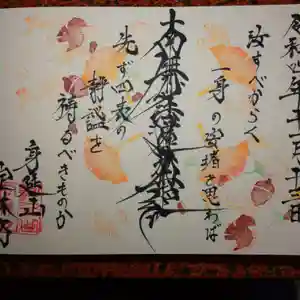 令和四年十一月十三日
汝すべからく
一身の安堵を思わば
南無妙法蓮華経
先ず四表の
静謐を
祷るべきものか
身延山